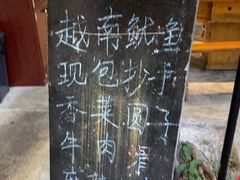 越南鱿鱼
现包抄手
香菜圆子
牛肉滑